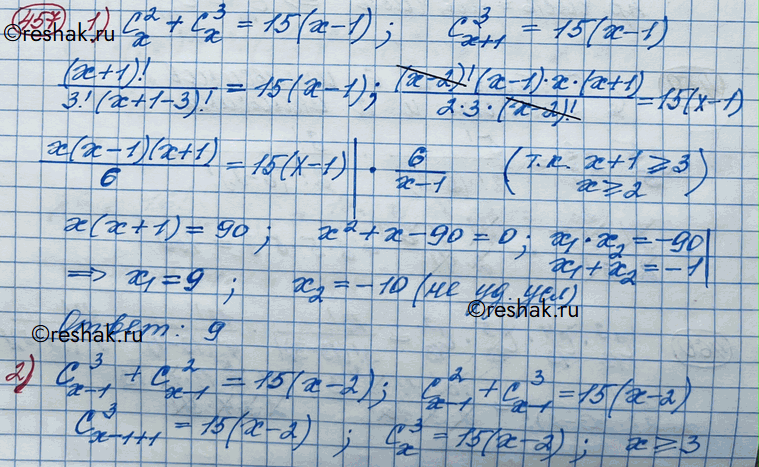 457 1) C_x^2 + C_x^3 = 15(x-1); C_{x+1}^3 = 15(x-1)
©reshak.ru
(x+1)! / 3!(x+1-3)! = 15(x-1); (x-2)!(x-1)·x·(x+1) / 2·3·(x-2)! = 15(x-1)
x(x-1)(x+1) / 6 = 15(x-1) | · 6 / x-1 (т.к. x+1 ⩾ 3
x ⩾ 2)
x(x+1) = 90; x² + x - 90 = 0; x₁·x₂ = -90
x₁ + x₂ = -1
⇒ x₁ = 9; x₂ = -10 (не уд. усл)
©reshak.ru
Ответ: 9
©reshak.ru
2) C_{x-1}^3 + C_{x-1}^2 = 15(x-2); C_{x-1}^2 + C_{x-1}^3 = 15(x-2)
C_{x-1+1}^3 = 15(x-2); C_x^3 = 15(x-2); x ⩾ 3